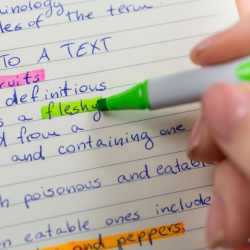 minology
les of the term
TO A TEXT
ruits
definitious
s a fleshy
d from a
and containing one
h poisonous and eatable
n eatable ones include
and peppers.